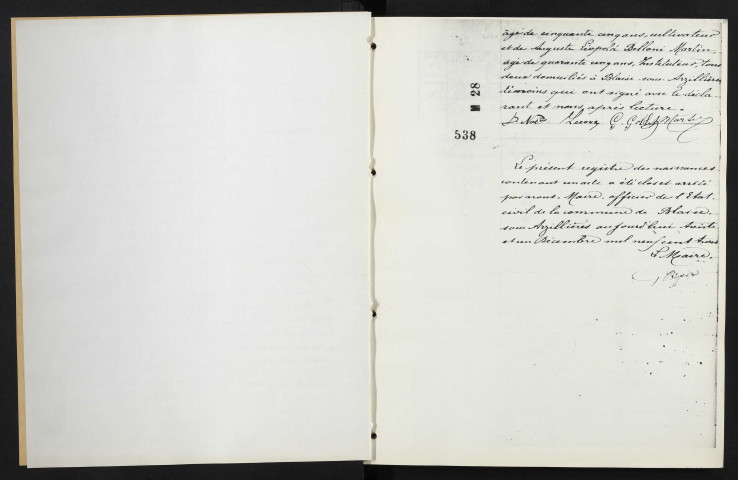 âgé de cinquante cinq ans, cultivateur
et de Auguste Léopold Belloni Martin,
âgé de quarante cinq ans, Instituteur, tous
deux domiciliés à Blaise sous Arzillières
témoins qui ont signé avec le décla-
rant et nous, après lecture.
Noël
M 28
538
Le présent registre des naissances
contenant un acte a été clos et arrêté
par nous, Maire, officier de l'Etat
civil de la commune de Blaise
sous Arzillières aujourd'hui trente
et un Décembre mil neuf cent trois
Le Maire.